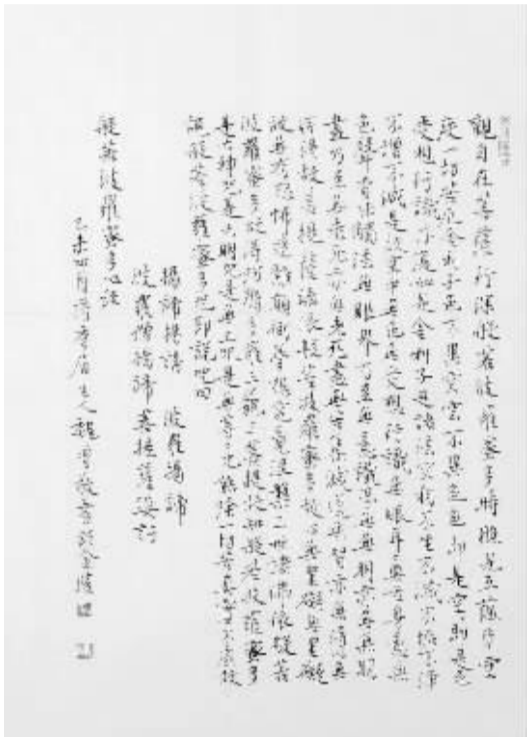 觀自在菩薩行深般若波羅蜜多時照見五蘊皆空
度一切苦厄舍利子色不異空空不異色色即是空空即是色
受想行識亦復如是舍利子是諸法空相不生不滅不垢不淨
不增不減是故空中無色無受想行識無眼耳鼻舌身意無
色聲香味觸法無眼界乃至無意識界無無明亦無無明
盡乃至無老死亦無老死盡無苦集滅道無智亦無得以無
所得故菩提薩埵依般若波羅蜜多故心無罣礙無罣礙
故無有恐怖遠離顛倒夢想究竟涅槃三世諸佛依般若
波羅蜜多故得阿耨多羅三藐三菩提故知般若波羅蜜多
是大神咒是大明咒是無上咒是無等等咒能除一切苦真實不虛故
說般若波羅蜜多咒即說咒曰
揭諦揭諦 波羅揭諦
波羅僧揭諦 菩提薩婆訶
般若波羅蜜多心經